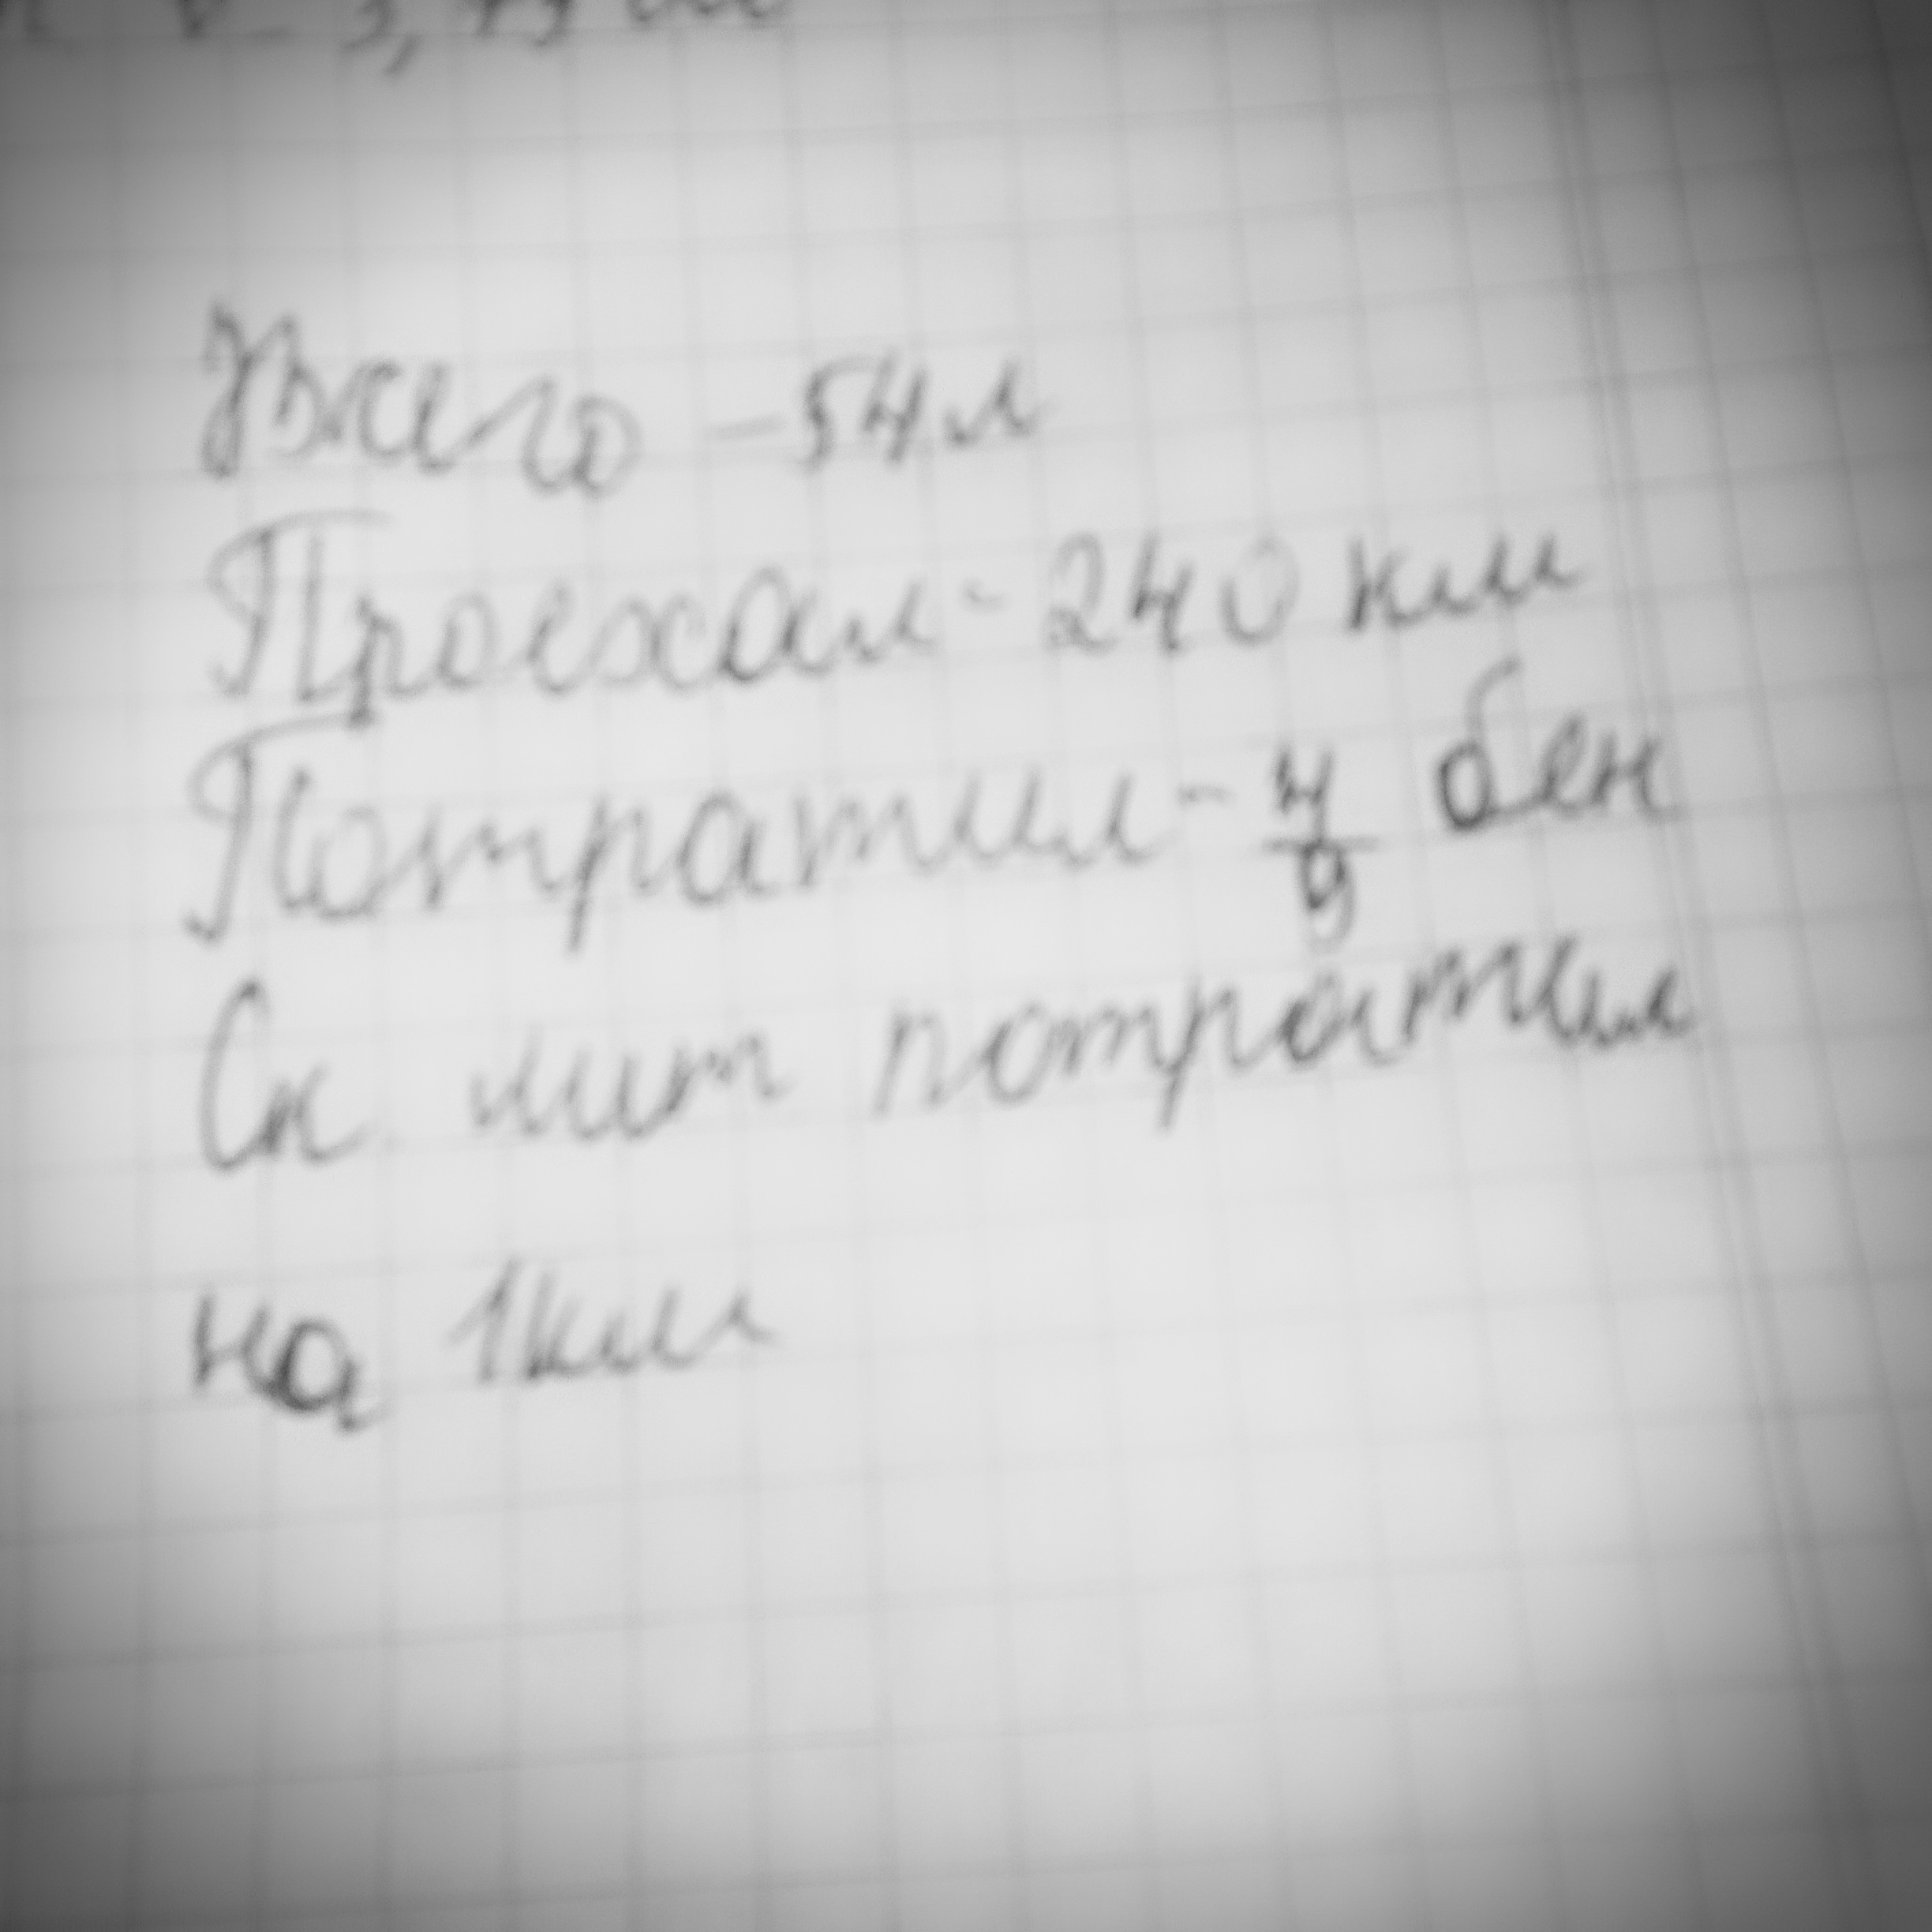 Всего - 54 л
Проехал - 240 км
Потратил - 4/9 бен
Ск лит потратил
на 1км